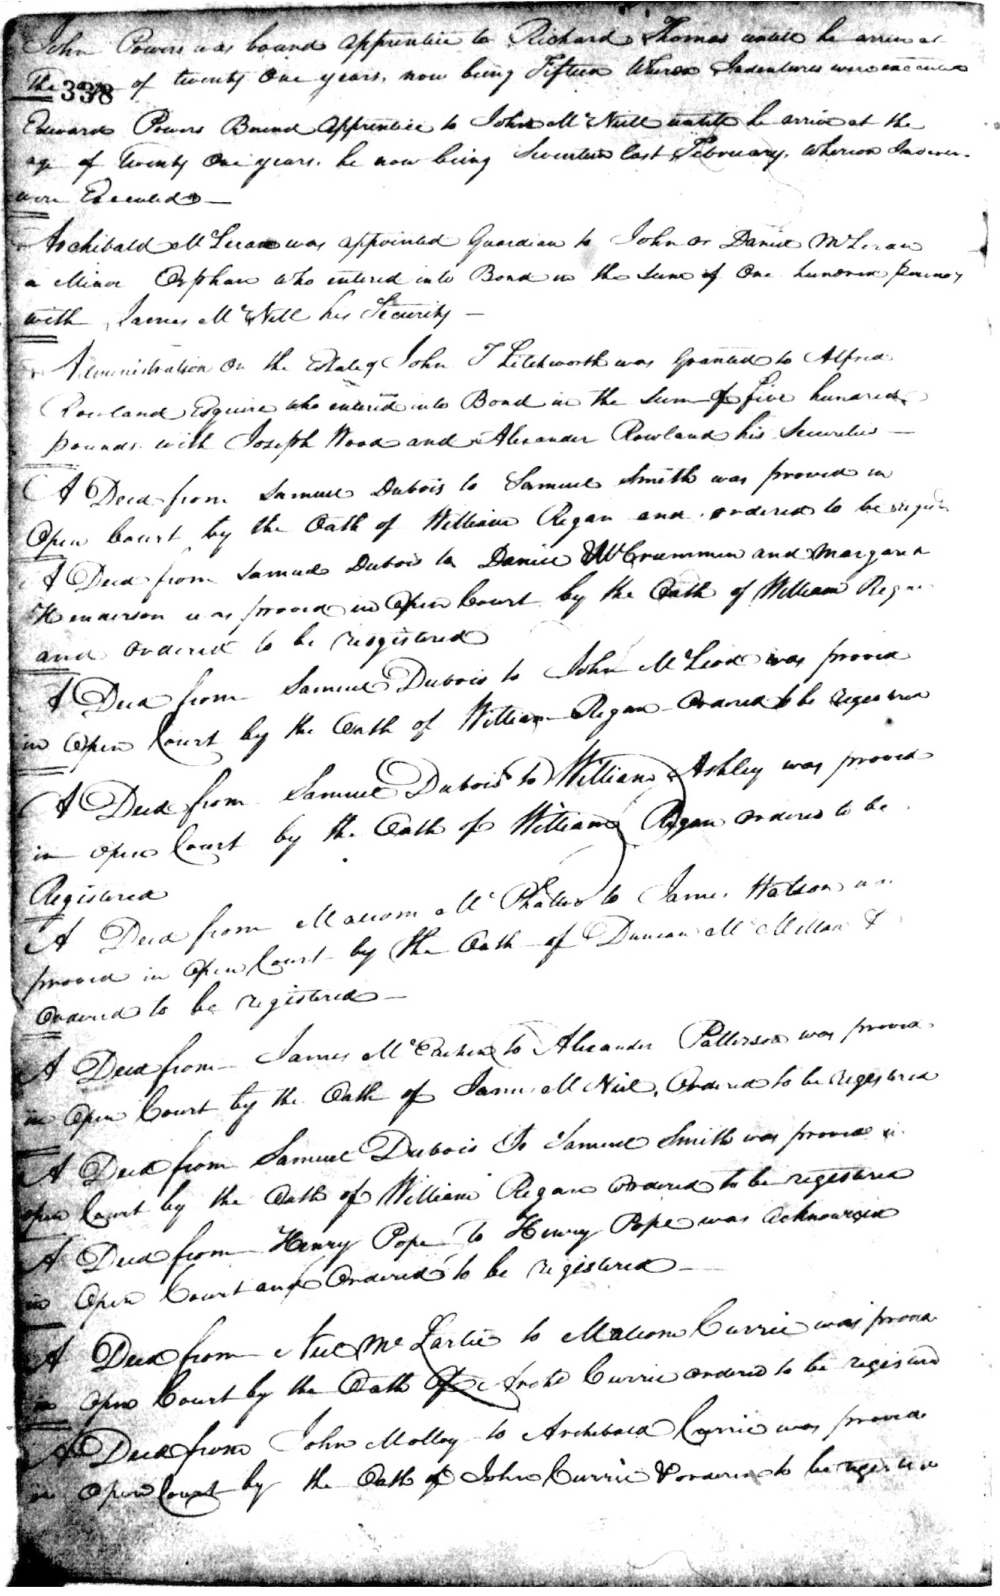 John Powers was bound apprentice to Richard Thomas untill he arrive at
the 338 of twenty One years, now being Fifteen Whereon Indentures were executed
Edward Powers Bound apprentice to John McNeill untill he arrive at the
age of twenty One years. he now being Seventeen last February. Whereon Inden-
were Executed —
Archibald McLeran was appointed Guardian to John or Daniel McLeran
a Minor Orphan who entered into Bond in the Sum of One hundred pounds
with James McNeill his Security —
Administration on the Estate of John T Litchworth was Granted to Alfred
Rowland Esquire who entered into Bond in the Sum of five hundred
pounds with Joseph Wood and Alexander Rowland his Securities —
A Deed from Samuel Dubois to Samuel Smith was proved in
Open Court by the Oath of William Regan and ordered to be regis
A Deed from Samuel Dubois to Daniel McCrummen and Margaret
Henderson was proved in Open Court by the Oath of William Regan
and ordered to be registered
A Deed from Samuel Dubois to John McLeod was proved
in Open Court by the Oath of William Regan Ordered to be registered
A Deed from Samuel Dubois to William Ashley was proved
in open Court by the Oath of William Regan ordered to be
Registered
A Deed from Malcom McPhatter to James Watson was
proved in Open Court by the Oath of Duncan McMillan &
Ordered to be registered —
A Deed from James McEachen to Alexander Patterson was proved
in Open Court by the Oath of James McNiel, Ordered to be registered
A Deed from Samuel Dubois To Samuel Smith was proved in
open Court by the Oath of William Regan ordered to be registered
A Deed from Henry Pope to Henry Pope was acknowged
in Open Court and Ordered to be registered —
A Deed from Neil Mc Lartie to Malcom Currie was proved
in Open Court by the Oath of Archd Currie ordered to be registerd
A Deed from John Molloy to Archibald Currie was proved
in Open Court by the Oath of John Currie & ordered to be registered